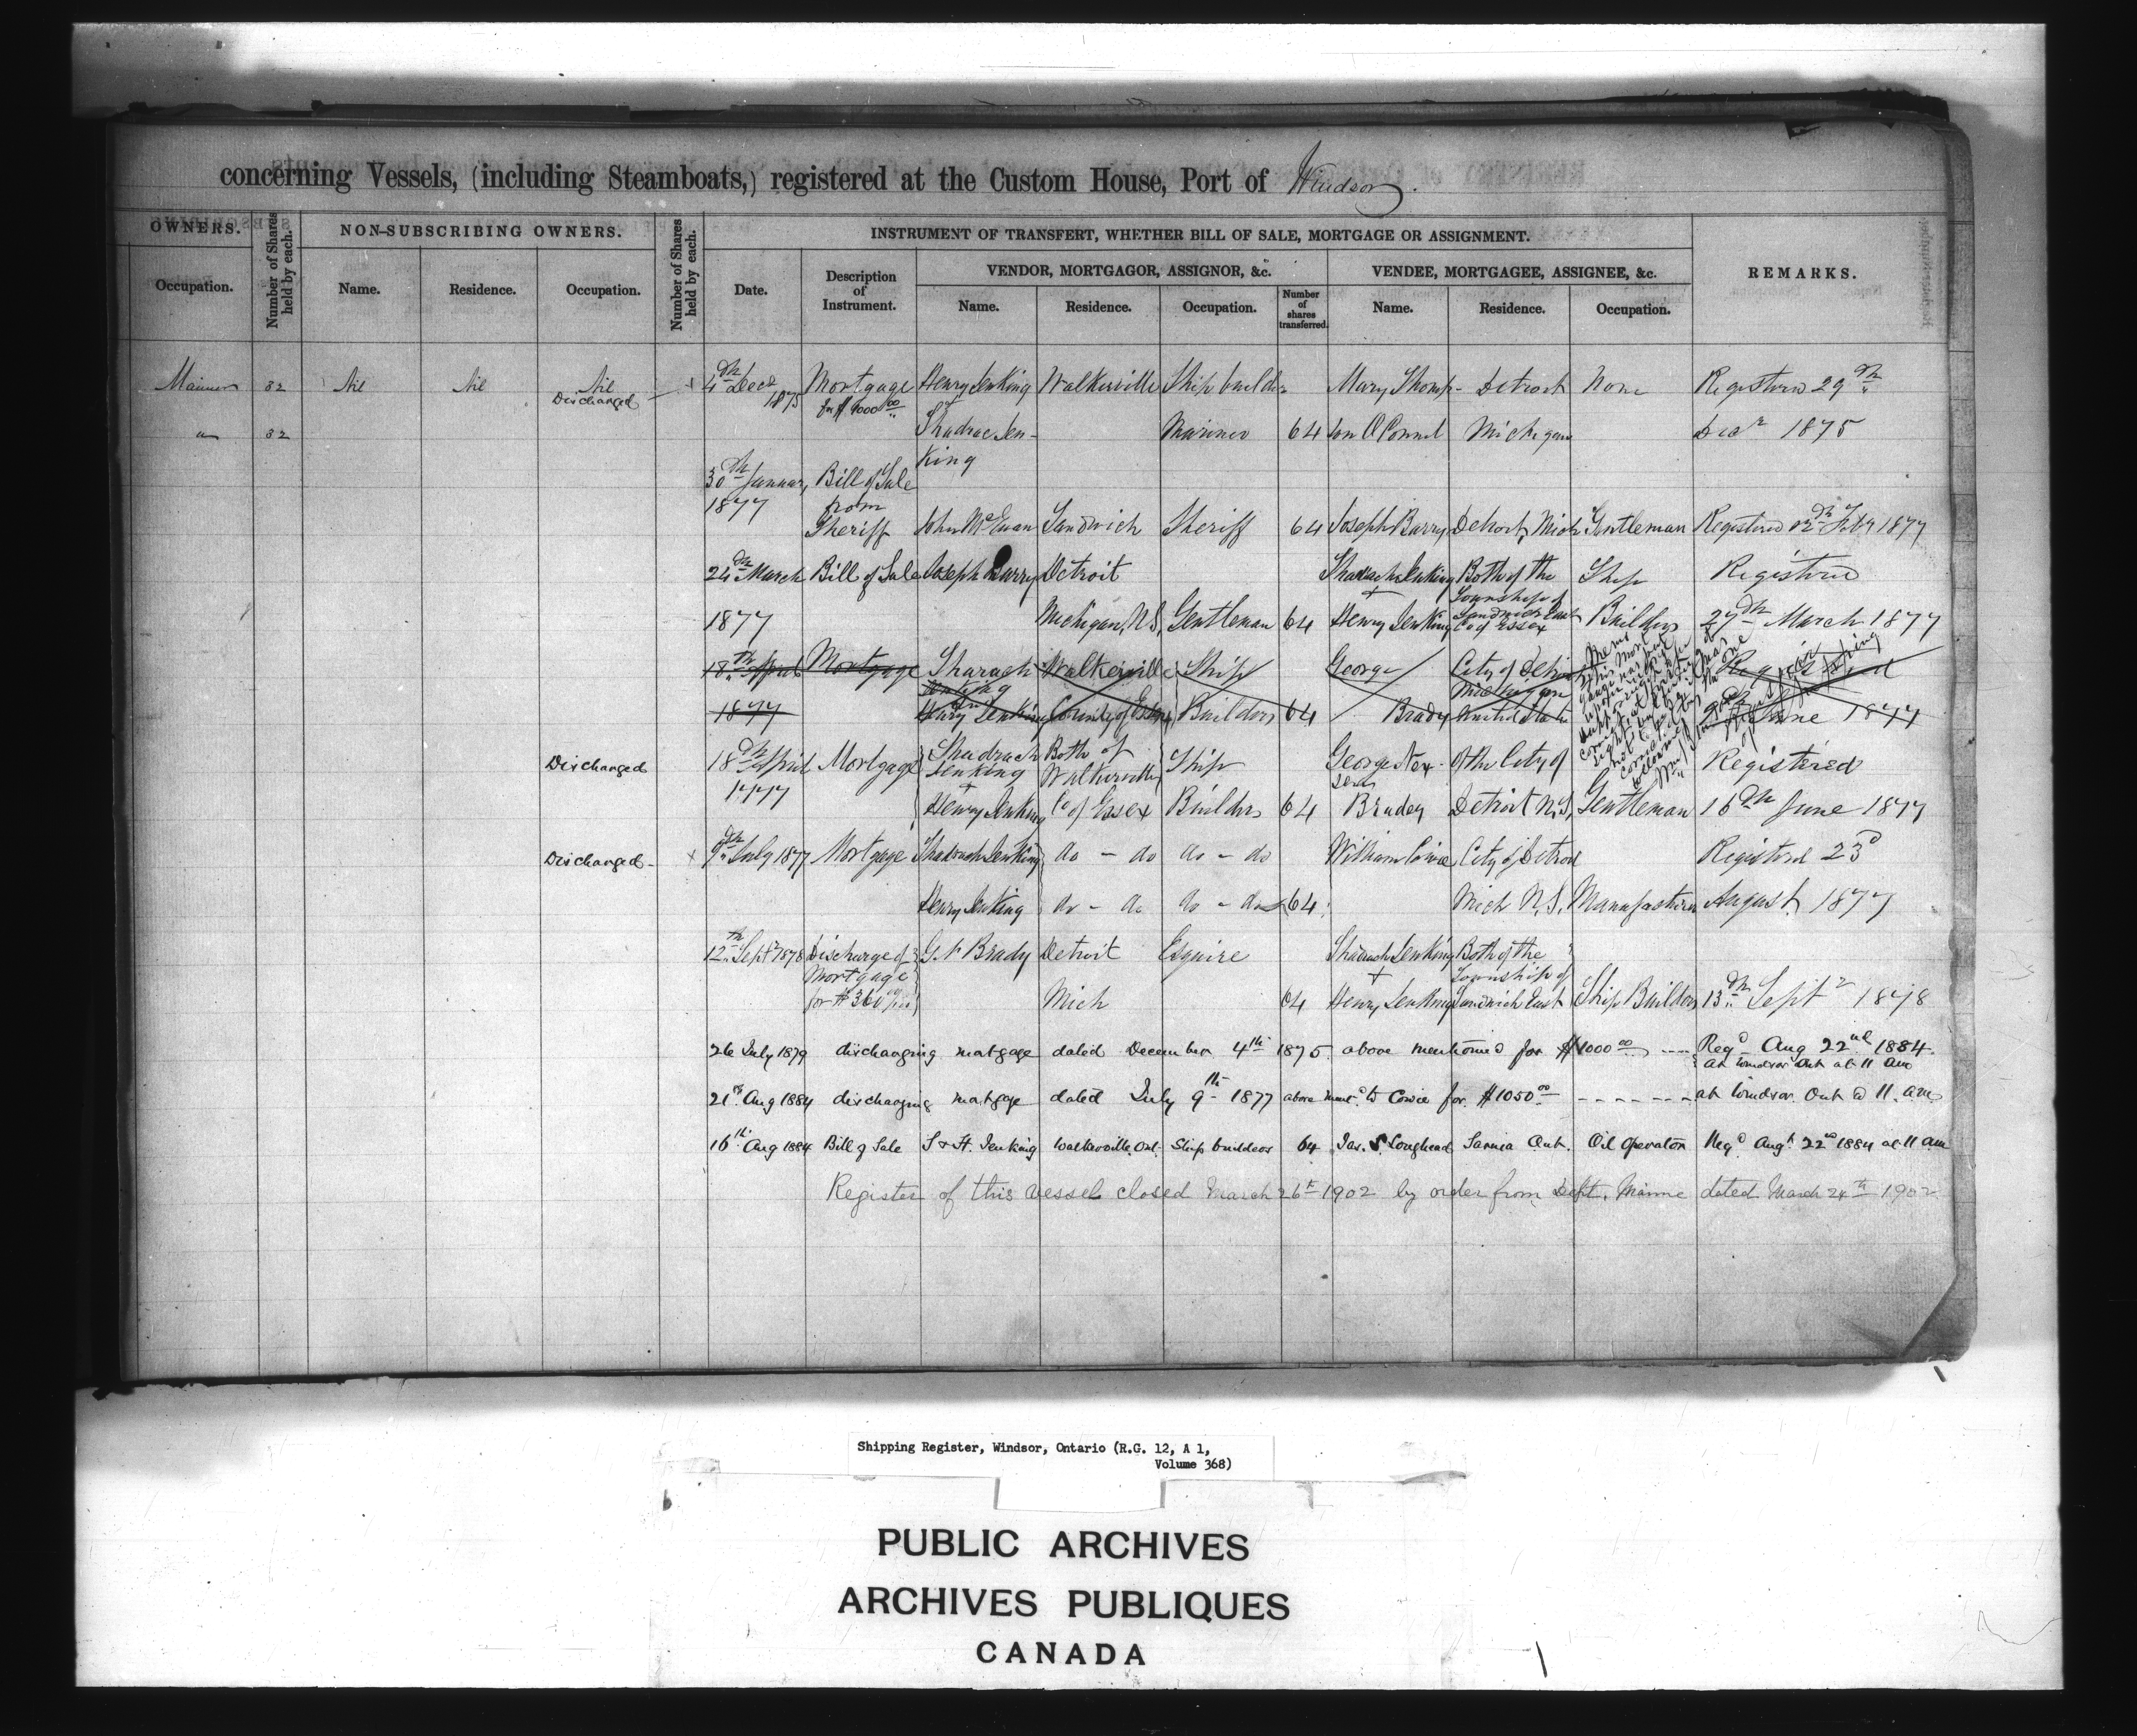 concerning Vessels, (including Steamboats,) registered at the Custom House, Port of Windsor.
OWNERS.
Number of Shares held by each.
NON-SUBSCRIBING OWNERS.
Number of Shares held by each.
INSTRUMENT OF TRANSFERT, WHETHER BILL OF SALE, MORTGAGE OR ASSIGNMENT.
REMARKS.
Occupation.
Name.
Residence.
Occupation.
Date.
Description of Instrument.
VENDOR, MORTGAGOR, ASSIGNOR, &c.
VENDEE, MORTGAGEE, ASSIGNEE, &c.
Name.
Residence.
Occupation.
Number of shares transferred.
Name.
Residence.
Occupation.
Mariner 32 Nil Nil Nil 4th Decr Mortgage Henry Jenking Walkerville Ship builder Mary Thomp- Detroit None Registered 29th
Discharged 1875 for $1000.00
32 Shadrac Jen- Mariner 64 son O'Connel Michigan Decr 1875
king
30th January Bill of Sale
1877 from
Sheriff John McEwan Sandwich Sheriff 64 Joseph Barry Detroit, Mich Gentleman Registered Feby 1877
24th March Bill of Sale Joseph Barry Detroit Shadrach Jenking Both of the Ship Registered
+ Township of
1877 Michigan, U.S. Gentleman 64 Henry Jenking Sandwich East Builders 27th March 1877
Co of Essex
18th April Mortgage Sharach Walkerville Ship George City of Detroit Registered
Jenking Michigan
1877 Henry Jenking County of Essex Builders 64 Brady United States June 1877
Discharged 18th April Mortgage Shadrach Both of Ship George Nex- Of the City of Registered
Jenking Walkerville
1877 + sen
Henry Jenking Co of Essex Builders 64 Brady Detroit U.S. Gentleman 16th June 1877
Discharged - x 9th July 1877 Mortgage Shadrach Jenking do - do do - do William Cowie City of Detroit Registered 23d
Henry Jenking do - do do - do 64 Mich U.S. Manufacturer August 1877
12th Sept 1878 Discharge of G. N Brady Detroit Esquire Shadrach Jenking Both of the
Mortgage + Township of
for $360 Mich 64 Henry Jenking Sandwich East Ship Builders 13th Septr 1878
26 July 1879 discharging mortgage dated December 4th 1875 above mentioned for $1000.00 ---- Regd Aug 22nd 1884
at Windsor Ont at 11 am
21st Aug 1884 discharging mortgage dated July 9th 1877 above ment'd to Cowie for $1050.00 ------- at Windsor Ont @ 11. a.m.
16th Aug 1884 Bill of Sale S & H. Jenking Walkerville Ont. Ship builders 64 Jas. S. Loughead Sarnia Ont. Oil Operator Regd Augt 22nd 1884 at 11 am
Register of this vessel closed March 26th 1902 by order from Dept. Marine dated March 24th 1902
Shipping Register, Windsor, Ontario (R.G. 12, A 1,
Volume 368)
PUBLIC ARCHIVES
ARCHIVES PUBLIQUES
CANADA